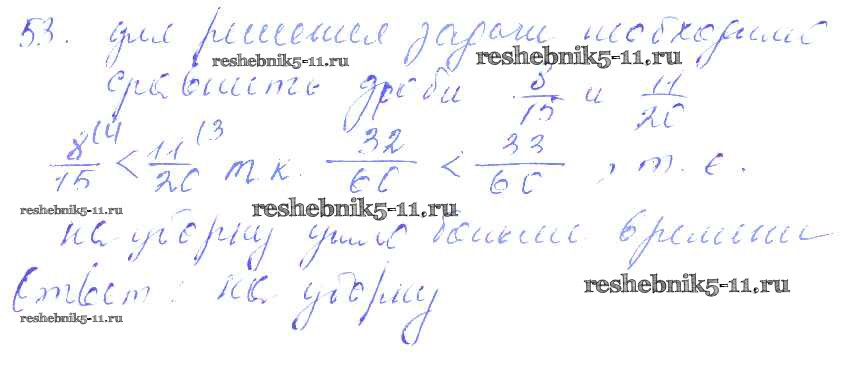 53. для решения задачи необходимо
reshebnik5-11.ru reshebnik5-11.ru
сравнить дроби 8/15 и 11/20
8/15 (4 < 11/20 (3 т.к. 32/60 < 33/60, т.е.
reshebnik5-11.ru reshebnik5-11.ru
на уборку ушло больше времени
Ответ: на уборку
reshebnik5-11.ru
reshebnik5-11.ru